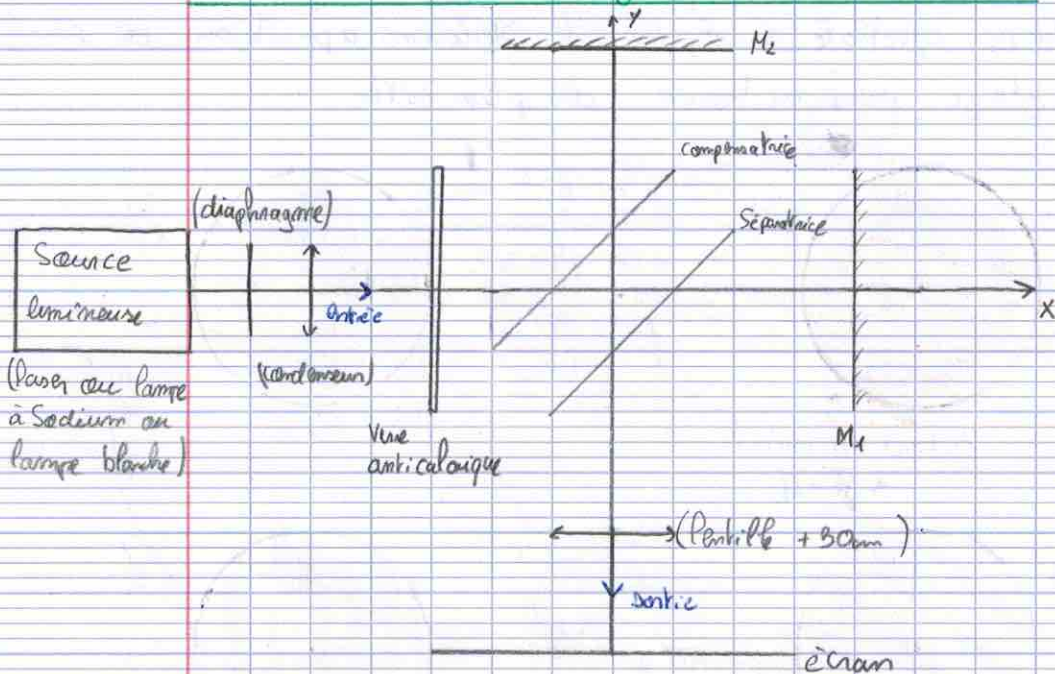 Y
M2
compensatrice
Séparatrice
(diaphragme)
Source
lumineuse
entrée
X
(condenseur)
(laser ou lampe
à Sodium ou
lampe blanche)
Verre
anticalorique
M1
(lentille +30cm)
sortie
écran